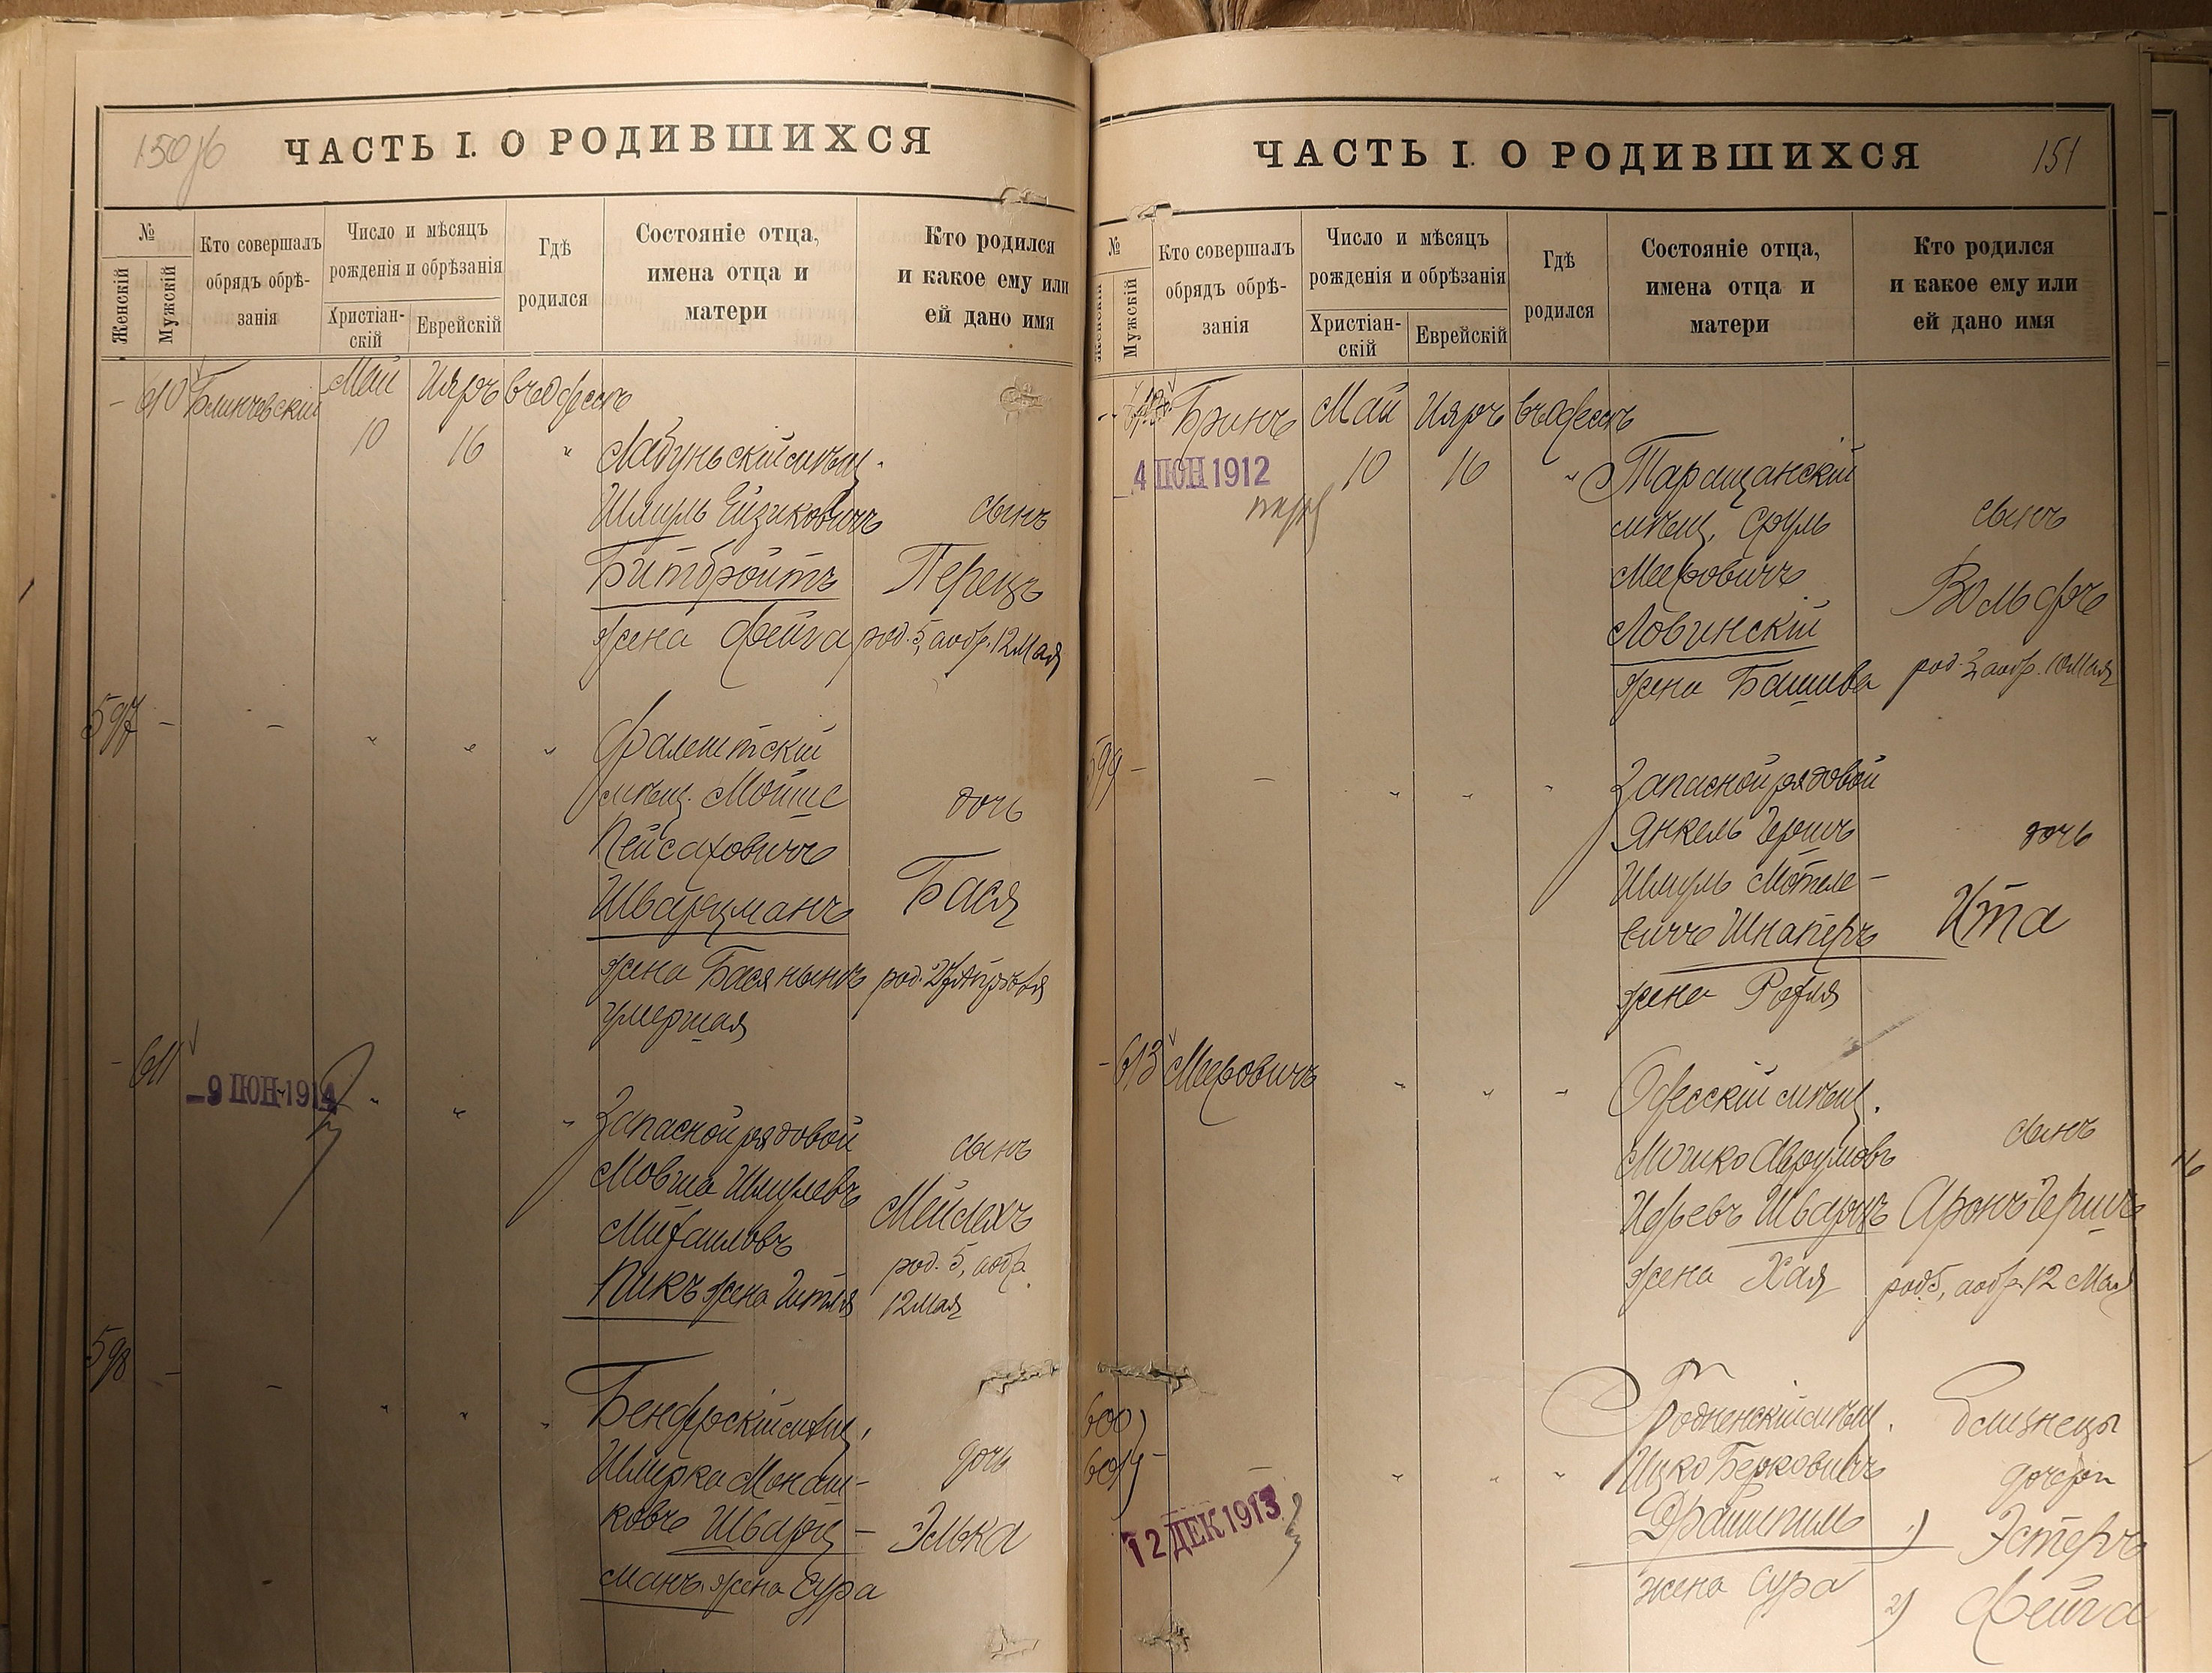 150 об
ЧАСТЬ I. О РОДИВШИХСЯ
№
Женскій
Мужскій
Кто совершалъ
обрядъ обрѣ-
занія
Число и мѣсяцъ
рожденія и обрѣзанія
Христіан-
скій
Еврейскій
Гдѣ
родился
Состояніе отца,
имена отца и
матери
Кто родился
и какое ему или
ей дано имя
- 610 Май Ияръ въ Одессѣ
10 16 "
Лабуньскій мѣщ.
Шмуль Ейзиковичъ сынъ
Битбройтъ Перецъ
жена Фейга род. 5, а обр. 12 Мая
597 - - " " "
Фалештскій
мѣщ. Мойше дочь
Пейсаховичъ
Шварцманъ Бася
жена Бася нынѣ род. 27 Апрѣля
умершая
- 611
-9 ІЮН 1914 " " "
Запасной рядовой
Мовша Шмулевъ сынъ
Михаиловъ Мейлехъ
Пикъ жена Гитля род. 5, а обр.
12 Мая
598 - - " " "
Бендерскій мѣщ.
Шмерка Монаш- дочь
ковъ Шварц- Элька
манъ, жена Сура
151
ЧАСТЬ I. О РОДИВШИХСЯ
№
Женскій
Мужскій
Кто совершалъ
обрядъ обрѣ-
занія
Число и мѣсяцъ
рожденія и обрѣзанія
Христіан-
скій
Еврейскій
Гдѣ
родился
Состояніе отца,
имена отца и
матери
Кто родился
и какое ему или
ей дано имя
- Бринъ Май Ияръ въ Одессѣ
4 ІЮН 1912 10 16 "
Таращанскій
мѣщ. Сруль сынъ
Мееровичъ Вольфъ
Ловинскій
жена Башива род. 3, а обр. 10 Мая
599 - - " " "
Запасной рядовой
Янкель Герш дочь
Шмуль Мотеле-
вичъ Шнаперъ Ита
жена Рохля
- 613 Мееровичъ " " "
Одесскій мѣщ.
Мошко Аврумовъ сынъ
Юрьевъ Шварцъ Аронъ Гершъ
жена Хая род. 5, а обр. 12 Мая
600)
601) - - " " "
12 ДЕК 1913
Гродненскій мѣщ. близнецы
Ицко Берковичъ дочери
Драшпиль 1) Эстеръ
жена Сура 2) Фейга